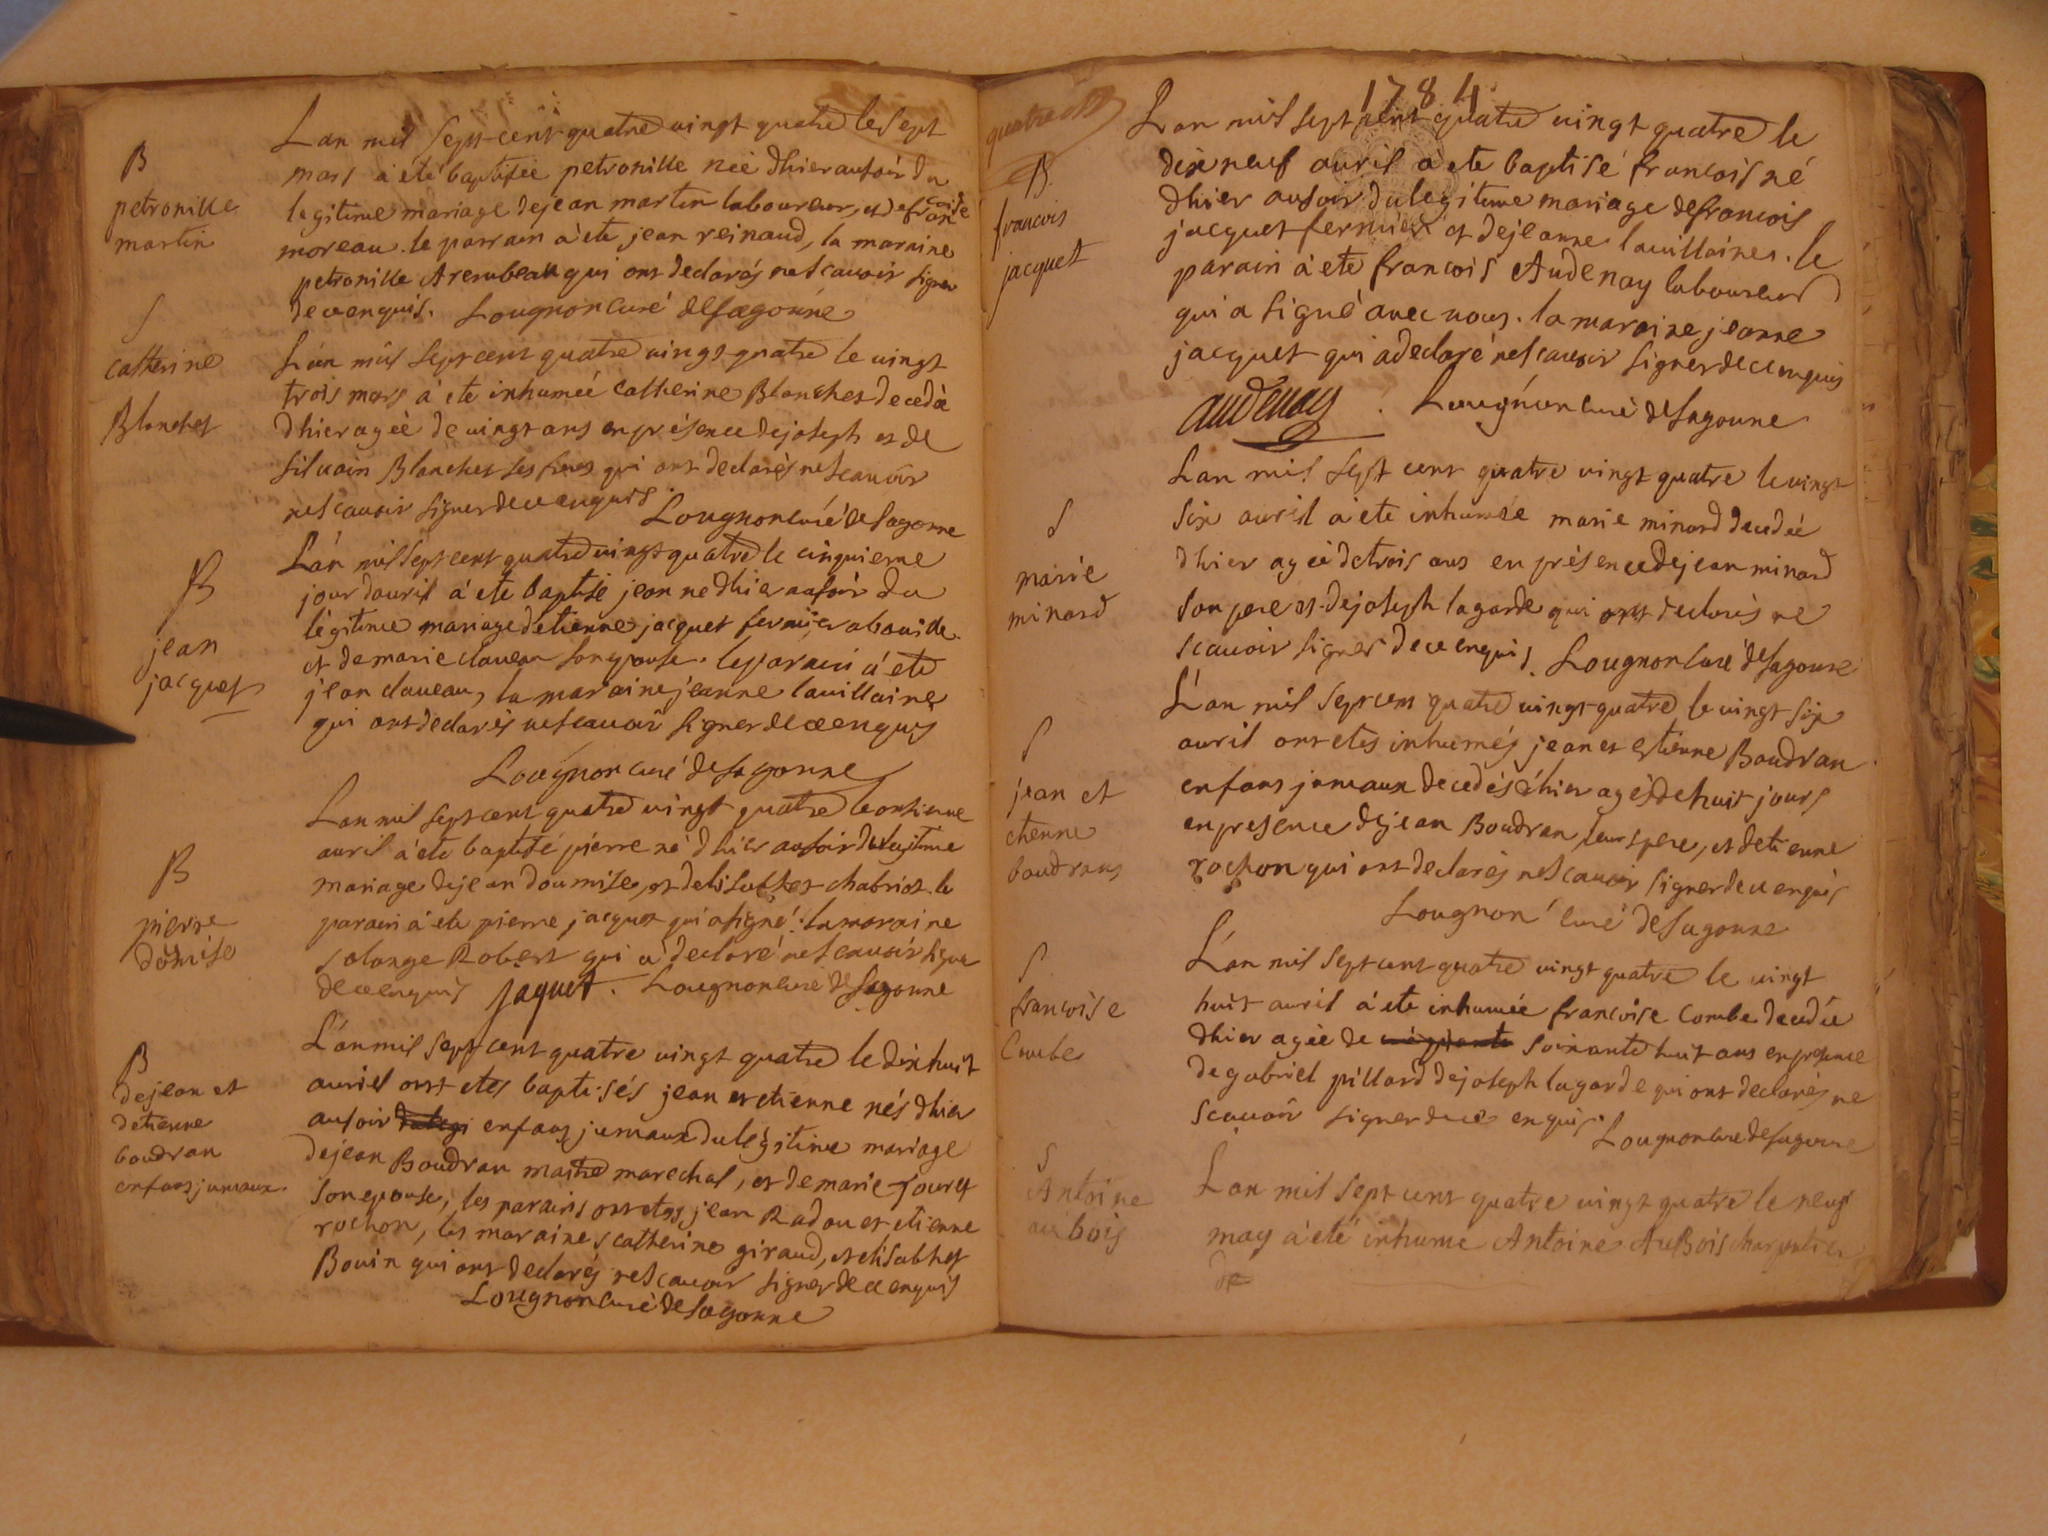 B
petronille
martin
Lan mil sept cent quatre vingt quatre le sept
mars a eté baptisée petronille neè dhier au soir du
legitime mariage de jean martin laboureur, et de francoise
moreau. le parrain à ete jean reinaud, la maraine
petronille Arembeau qui ont declarés ne scavoir signer
de ce enquis. Lougnon curé de sagonne
S
catherine
Blanchet
Lan mil sept cent quatre vingt quatre le vingt
trois mars à ete inhumeé Catherine Blanchet decedeè
dhier ageè de vingt ans en présence de joseph et de
silvain Blanchet ses freres qui ont declarès ne scavoir
ne scavoir signer de ce enquis. Lougnon curé de sagonne
B
jean
jacquet
Lán mil sept cent quatre vingt quatre le cinquieme
jour davril á ete baptisé jean ne dhier au soir du
légitime mariage detienne jacquet fermier a bouide
et de marie claveau son epouse. le parain á ete
jean claveau, la maraine jeanne lavillaine
qui ont declarès ne scavoir signer de ce enquis
Lougnon curé de sagonne
B
pierre
domise
Lan mil sept cent quatre vingt quatre le onsieme
avril à ete baptisé pierre né dhier au soir du legitime
mariage de jean doumise, et delisabhet chabriot. le
parain á ete pierre jacquet qui a signé. la maraine
solange Robert qui a declaré ne scavoir signer
de ce enquis jaquet. Lougnon curé de sagonne
B
de jean et
detienne
boudran
enfans jumaux
Lán mil sept cent quatre vingt quatre le dix huit
avril ont etes baptisés jean et etienne nés dhier
au soir du legi enfans jumaux du légitime mariage
de jean Boudran maitre marechal, et de marie fouret
son epouse, les parains ont etes jean Radou et etienne
rochon, les maraines catherine giraud, et elisabhet
Bouin qui ont declarés ne scavoir signer de ce enquis
Lougnon curé de sagonne
1784
quatre
B.
francois
jacquet
Lan mil sept cent quatre vingt quatre le
dix neuf avril a ete baptisé francois né
dhier au soir du legitime mariage de francois
jacquet fermier et de jeanne lavillaines. le
parain à ete francois Audenay laboureur
qui a signé avec nous. la maraine jeanne
jacquet qui a declaré ne scavoir signer de ce enquis
audenay. Lougnon curè de sagonne
S
marie
minard
Lan mil sept cent quatre vingt quatre le vingt
six avril a ete inhumée marie minard decedeè
dhier ageè de trois ans en présence de jean minard
son pere et de joseph lagarde qui ont declarès ne
scavoir signer de ce enquis. Lougnon curé de sagonne
S
jean et
etienne
boudrans
Lán mil sept cent quatre vingt quatre le vingt six
avril ont etes inhumés jean et etienne Boudran
enfans jumaux decedés dhier agés de huit jours
en presence de jean Boudran leurs pere, et detienne
rochon qui ont declarés ne scavoir signer de ce enquis
Lougnon curé de sagonne
S
francoise
Combe
Lán mil sept cent quatre vingt quatre le vingt
huit avril á ete inhumée francoise Combe decedée
dhier ageè de cinquante soixante huit ans en presence
de gabriel pillard de joseph lagarde qui ont declarés ne
scavoir signer de ce enquis. Lougnon curé de sagonne
S
Antoine
au bois
Lan mil sept cent quatre vingt quatre le neuf
may à eté inhumé Antoine AuBois charpentier
de